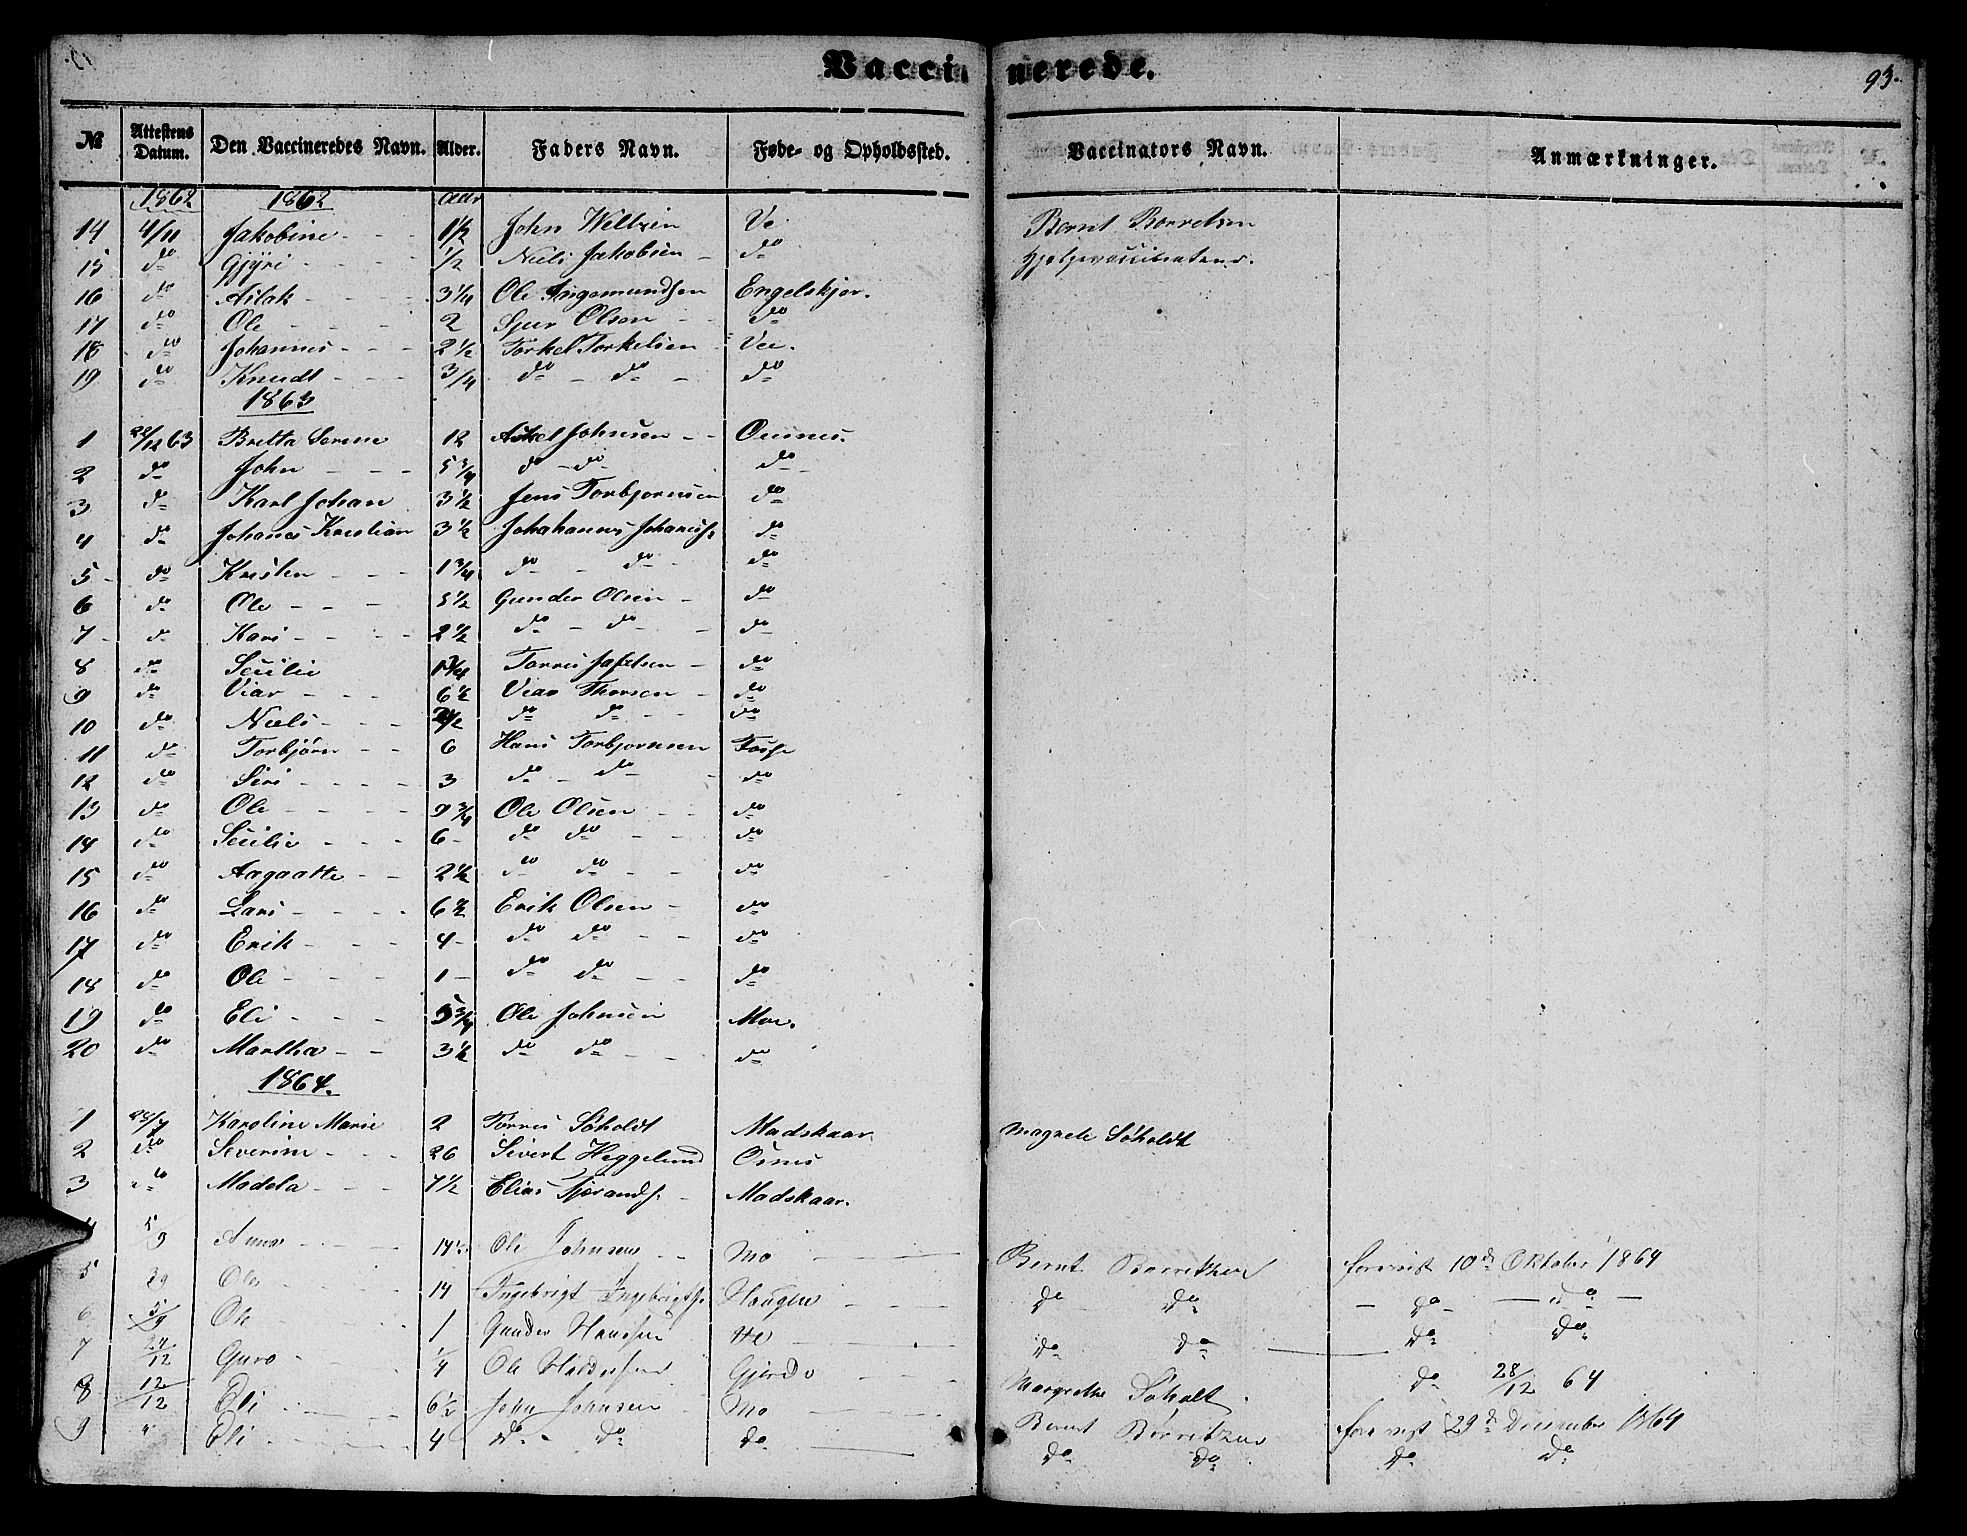 Vaccinerede.
93.
№ Attestens Datum. Den Vaccineredes Navn. Alder. Faders Navn. Føde- og Opholdssted. Vaccinators Navn. Anmærkninger.
1862 1862 aar
14 4/11 Jakobine - - - 1½ John Weltzin Ve Bernt Borretsen
15 do Gjøri - - - - ½ Niels Jakobsen - do
16 do Aslak - - - - 3¼ Ole Ingemundsen Engelskjør.
17 do Ole - - - - 2 Sjur Olson - - do
18 do Johannes - - - 2½ Torkel Torkelsen Vee.
19 do Knudt - - - 3/4 do - do - do
1863
1 22/12 63 Britta Serene 12 Askel Johnsen - - Osnes.
2 do John - - - 5¾ do - do - do
3 do Karl Johan 3½ Jens Torbjornsen do
4 do Johanes Kristian 3½ Johahannes Johannesf. do
5 - do Kristen - - - 1¾ do - do - do
6 do Ole - - - 5½ Gunder Olsen - do
7 - do Kari - - - - 2½ do - do - - do
8 do Sesilie 1¾ Torres - do
9 do Viar - - - 6½ Viar Thorsen - do
10 do Niels - - - 2½ do do - - do
11 do Torbjørn - - 6 Hans Torbjornsen Fosse
12 do Siri - - - - 3 do - do - do
13 do Ole - - - - 9¾ Ole Olsen - - do
14 do Sesilie - - - 6 - do do - - do
15 do Aagaatte - - 2½ do do - - do
16 do Lars - - - - 6½ Erik Olsen - do
17 do Erik - - - 4 - do do - - do
18 do Ole - - - - 1 - do do - - do
19 do Eli - - - - 5¾ Ole Johnsen Moe.
20 do Martha - - 3½ do do - - do
1864.
1 28/7 Karoline Marie 2 Torres Søholdt Madskaar Magrete Søholdt
2 do Severine - - - 26 Sivert Heggelund Osnes
3 do Madela - - - 7½ Elias Sjørandsf. - Madskaar.
4 5/9 Anna - - - 14½ Ole Johnsen - - Mo Bernt Borretzen forevist 10de Oktober 1864
5 Ole 14 Ingebrigt Ingebrigtsf. Haugen - - - do do - do - do -
6 5/9 Ole 1 Gunder Hansen Ve do do do do
7 24/12 Guro - ¼ Ole Gjerde - - - Margrethe Søholt do 28/12 64
8 12/12 Eli - - - 6½ John Johnsen - Mo Bernt Børritzen forevist 29de December 1864
9 " Eli - - - 4 do - do do do do do do